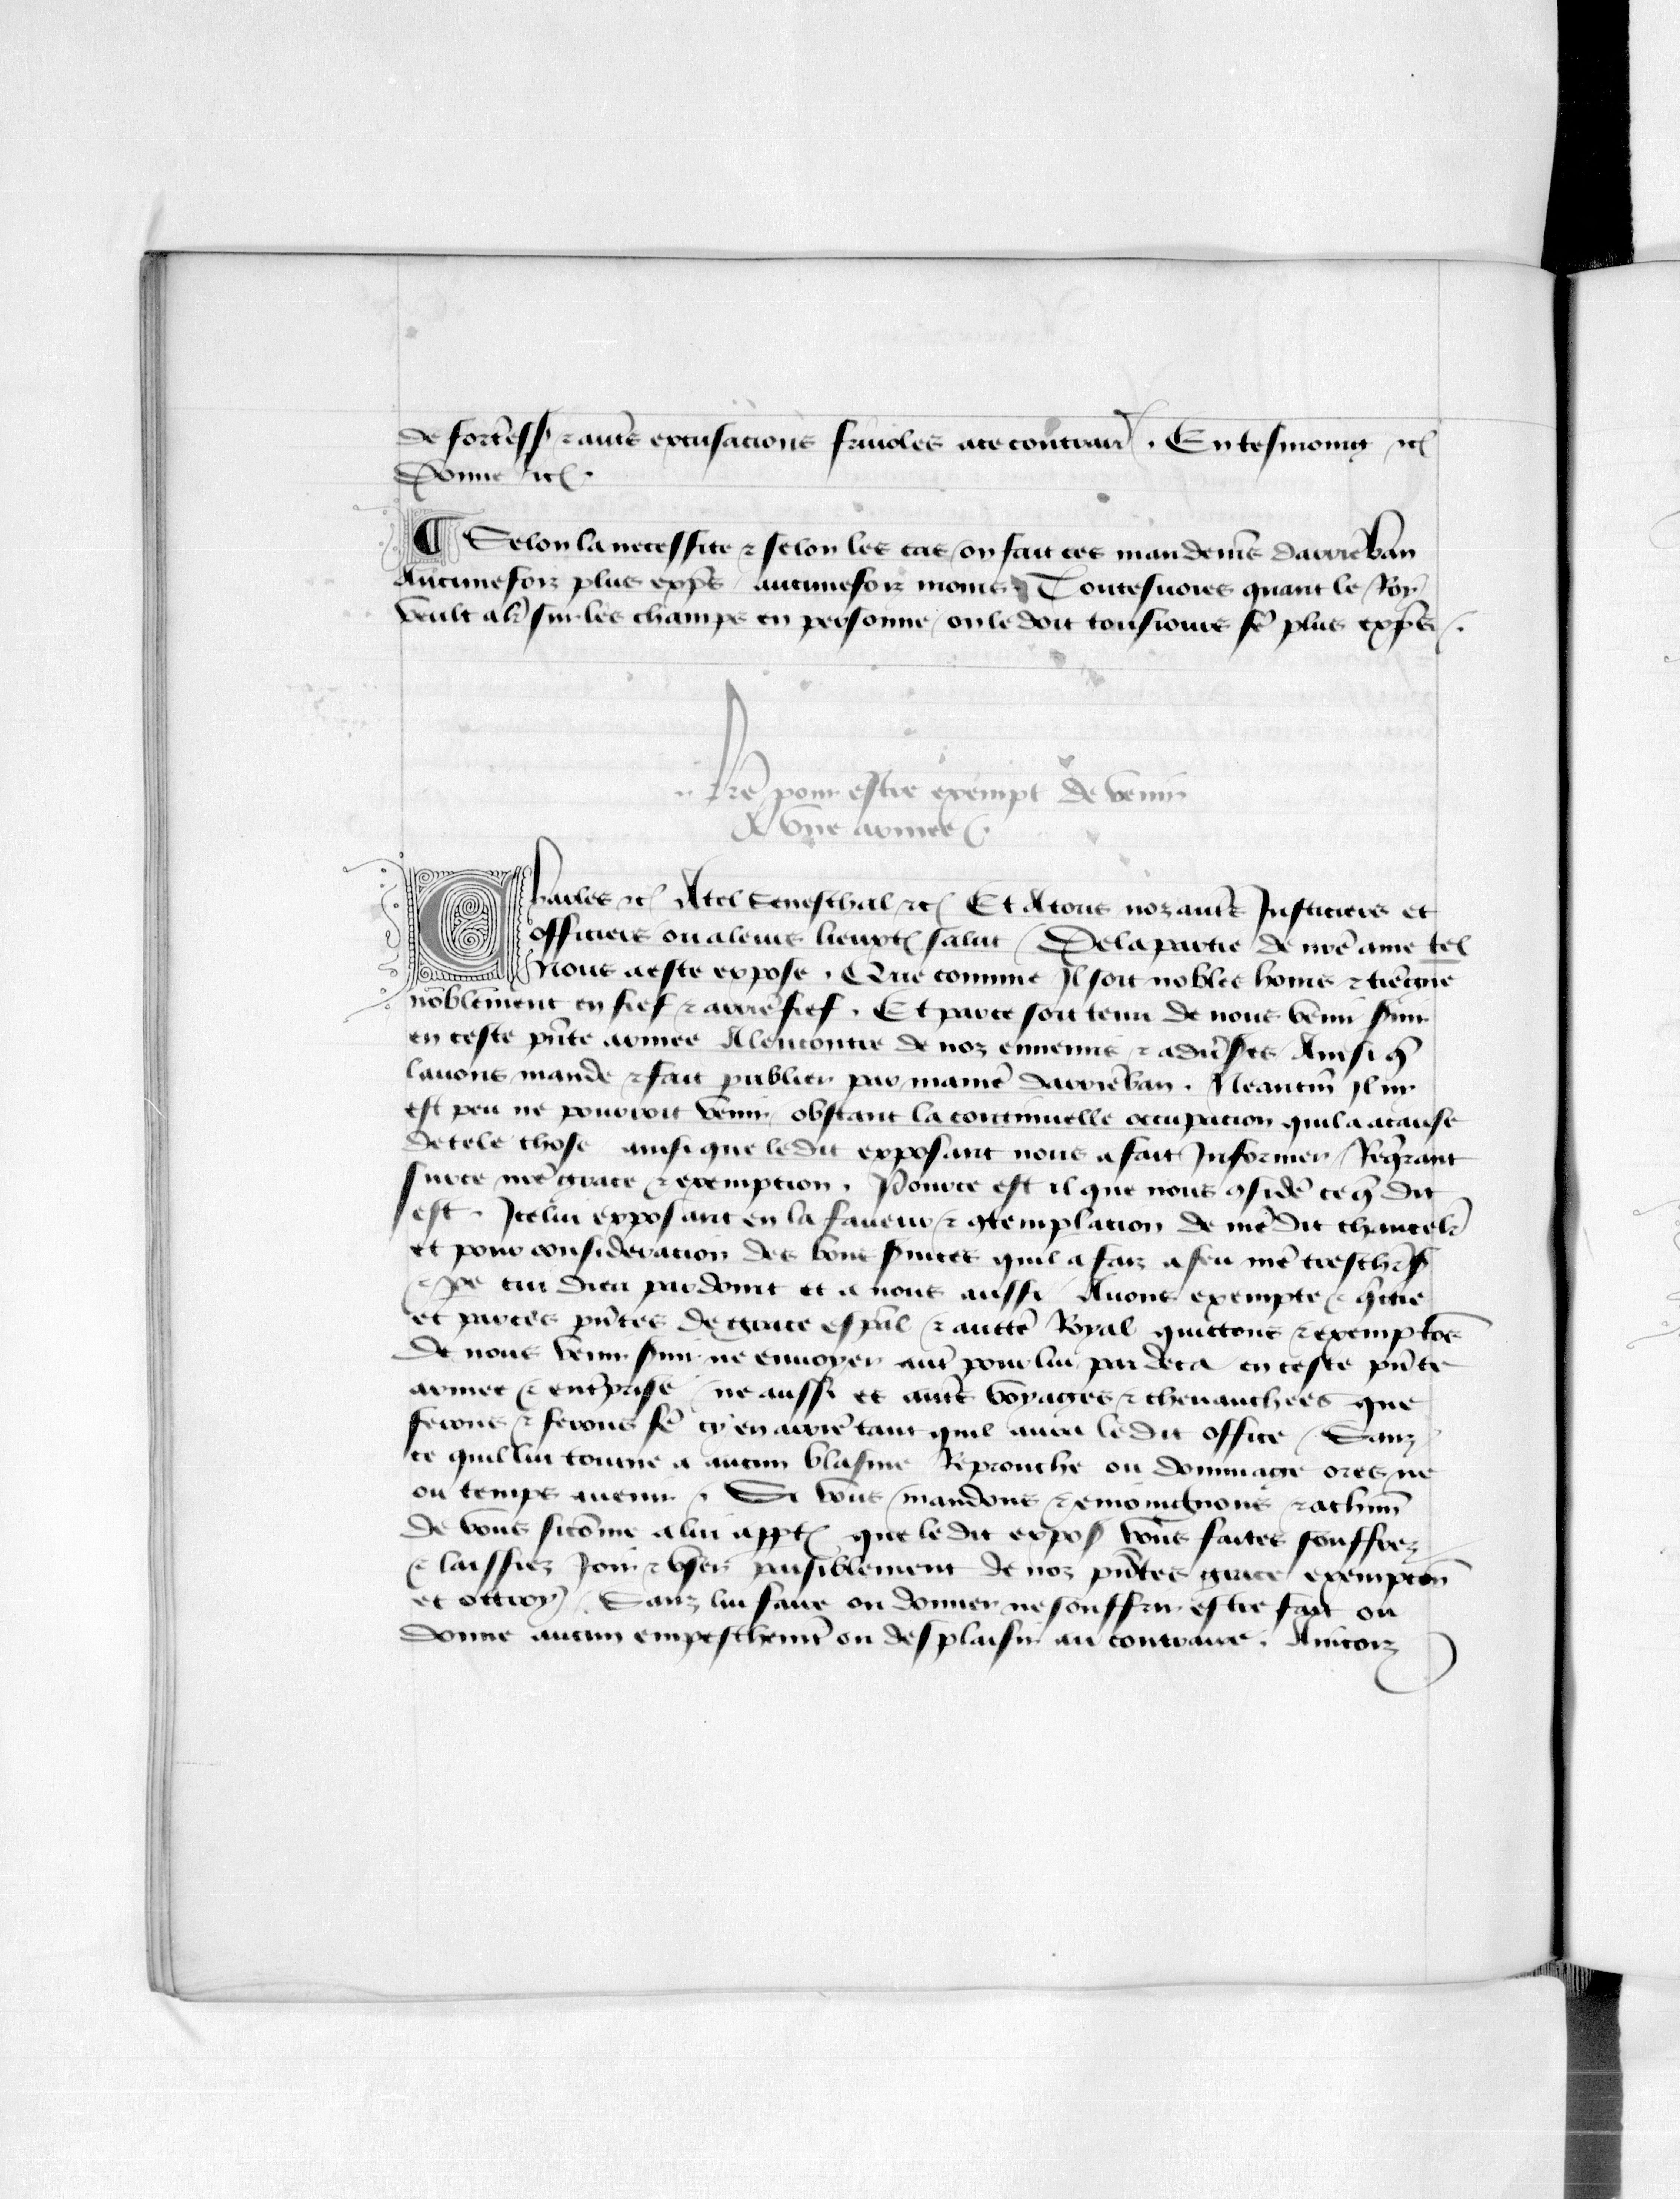 de fort̾ess̾ ⁊ aut̾s excusacions friuoles a ce contrair̾ . En tesmoing ⁊c̾
Donne ⁊c̾ .
¶ Selon la necessite ⁊ selon les cas / on fait ces mandem̾s darrie᷑ban
Aucunesfoiz plus exp̾s / aucunesfoiz moins . Toutesuoies quant le Roy
veult al̾r sur les champs en personne / on le doit tousiours f̾e plus exp̾s .
l̾re pour estre exempt de venir
A vne armee .
Charles ⁊c̾ A tel Seneschal ⁊c̾ Et A tous noz aut̾s Justiciers et
officiers ou a leurs lieuxt̾ salut / De la partie de nr̾e ame tel
Nous a este expose . Que comme Jl soit nobles homs ⁊ tie᷑gne
noblement en fief ⁊ arrie᷑fief . Et par ce soit tenu de nous veni s̾uir
en ceste pn̾te armee Alencontre de noz ennemis ⁊ adu̾s̾es Ainsi q̾
lauons mande ⁊ fait publier par mam̾t darrie᷑ban . Neantm̾ Jl ny
est peu ne pourroit venir / obstant la continuelle occupacion quil a a cause
de tele chose ainsi que le dit exposant nous a fait Jnformer / Req̾rant
sur ce nr̾e grace ⁊ exempcion . Pource est il que nous ꝯside᷑ ce q̾ dit
est . Jcelui exposant en la faueur ⁊ ꝯtemplacion de nr̾e dit chancel̾r
et pour consideracion des bons s̾uices quil a faiz a feu nr̾e treschr̾ s̾
⁊ pe᷑ cui dieu pardoint et a nous aussi Auons exempte ⁊ q̾tte
et par ces pn̾tes de grace esp̾al ⁊ auttte᷑ Royal quittons ⁊ exemptos̾
De nous venir s̾uir ne enuoyer aut̾ pour lui par deca en ceste pn̾te
armee ⁊ ent̾prise / ne aussi es aut̾s voyages ⁊ cheuauchees que
ferons ⁊ ferons f̾e cy en arrie᷑ tant quil aura le dit office / Sanz
ce quil lui tourne a aucun blasme Reprouche ou dommage ores ne
ou temps auenir . Si vous mandons ⁊ enioingnons ⁊ a chun̾
de vous sicom̾e a lui appt̾ que le dit expos̾ vous faites souffrez
⁊ laissiez Joir ⁊ vser paisiblement de noz pn̾tes grace exempcon̾
et ottroy / Sanz lui faire ou donner ne souffrir estre fait ou
donne aucun empeschem̾t ou desplaisir au contraire . Aincoiz